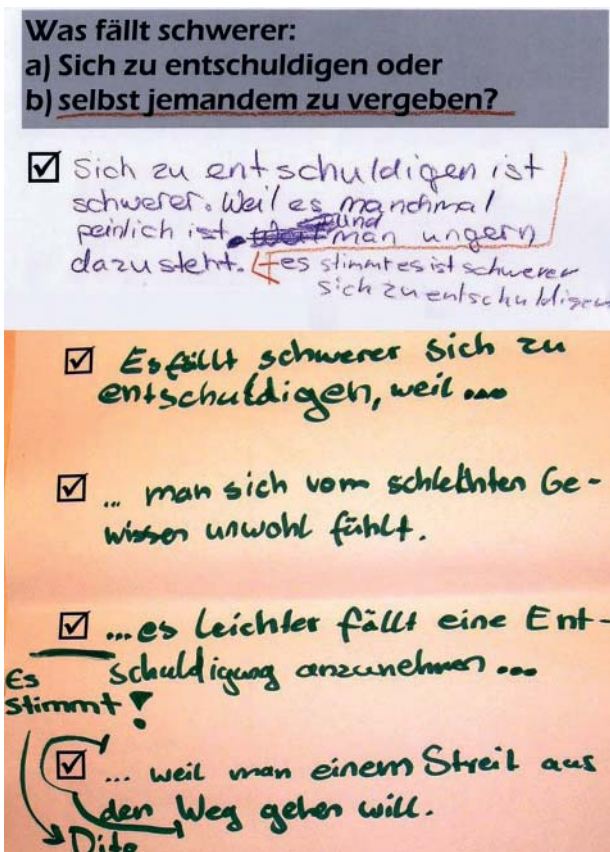 Was fällt schwerer:
a) Sich zu entschuldigen oder
b) selbst jemandem zu vergeben?
Sich zu entschuldigen ist
schwerer. Weil es manchmal
peinlich ist und man ungern
dazu steht.
es stimmt es ist schwerer
sich zu entschuldigen
Es fällt schwerer sich zu
entschuldigen, weil ...
... man sich vom schlechten Ge-
wissen unwohl fühlt.
... es leichter fällt eine Ent-
schuldigung anzunehmen ...
Es
stimmt!
... weil man einem Streit aus
den Weg gehen will.
Dito